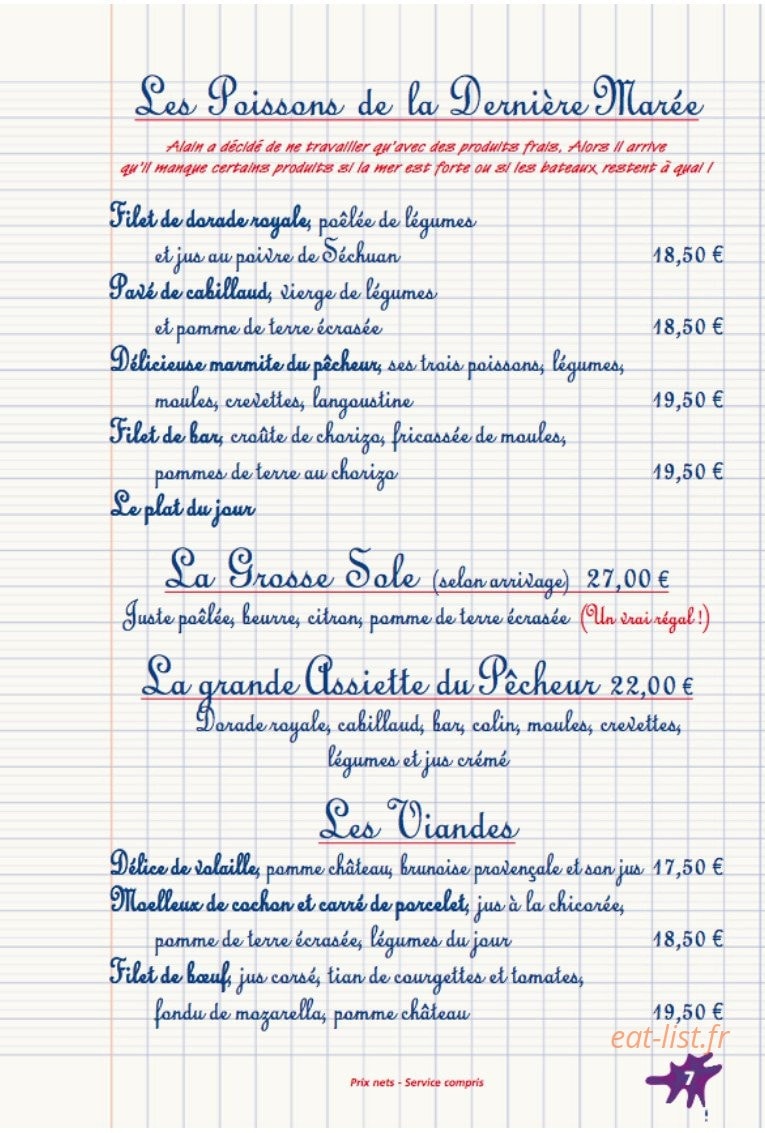 Les Poissons de la Dernière Marée
Alain a décidé de ne travailler qu'avec des produits frais. Alors il arrive
qu'il manque certains produits si la mer est forte ou si les bateaux restent à quai !
Filet de dorade royale, poêlée de légumes
et jus au poivre de Séchuan 18,50 €
Pavé de cabillaud, vierge de légumes
et pomme de terre écrasée 18,50 €
Délicieuse marmite du pêcheur, ses trois poissons, légumes,
moules, crevettes, langoustine 19,50 €
Filet de bar, croûte de chorizo, fricassée de moules,
pommes de terre au chorizo 19,50 €
Le plat du jour
La Grosse Sole (selon arrivage) 27,00 €
Juste poêlée, beurre, citron, pomme de terre écrasée (Un vrai régal !)
La grande Assiette du Pêcheur 22,00 €
Dorade royale, cabillaud, bar, colin, moules, crevettes,
légumes et jus crémé
Les Viandes
Délice de volaille, pomme château, brunoise provençale et son jus 17,50 €
Moelleux de cochon et carré de porcelet, jus à la chicorée,
pomme de terre écrasée, légumes du jour 18,50 €
Filet de bœuf, jus corsé, tian de courgettes et tomates,
fondu de mozarella, pomme château 19,50 €
eat-list.fr
Prix nets - Service compris
7